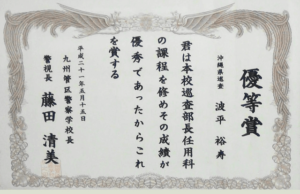 優等賞
沖縄県巡査
波平 裕寿
君は本校巡査部長任用科
の課程を修めその成績が
優秀であったからこれ
を賞する
平成二十一年五月十五日
九州管区警察学校長
警視長 藤田 清美